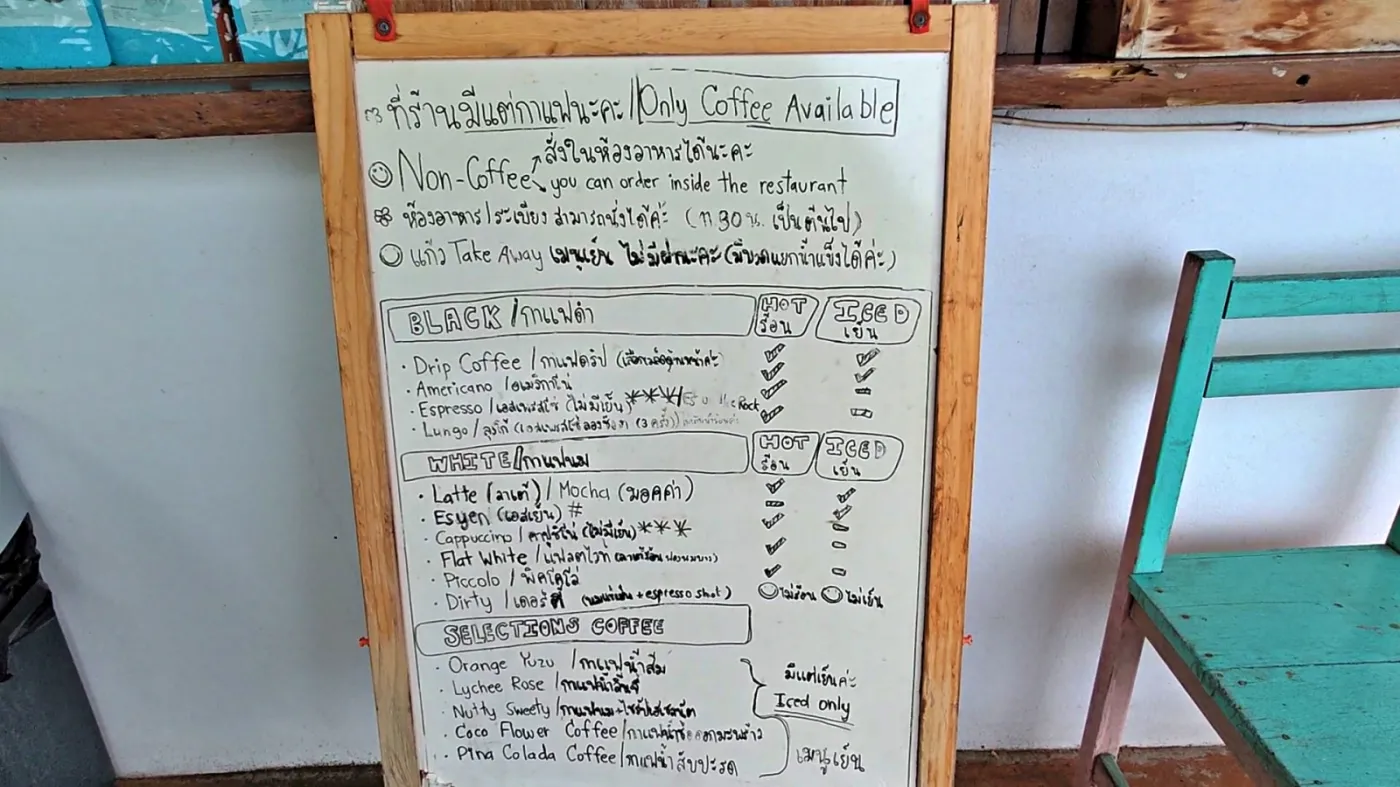 ที่ร้านมีแต่กาแฟนะคะ / Only Coffee Available
สั่งในห้องอาหารได้นะคะ
Non-Coffee you can order inside the restaurant
ห้องอาหาร/ระเบียง สามารถนั่งได้ค่ะ ( 11 30 น. เป็นต้นไป)
แก้ว Take Away เมนูเย็น ไม่มีฝานะคะ (มีขวดแยกน้ำแข็งได้ค่ะ)
BLACK / กาแฟดำ HOT ร้อน ICED เย็น
· Drip Coffee / กาแฟดริป
· Americano / อเมริกาโน่
· Espresso / เอสเพรสโซ่ (ไม่มีเย็น) *** / Rock
· Lungo / ลุงโก้ (3 ครั้ง)
WHITE / กาแฟนม HOT ร้อน ICED เย็น
· Latte (ลาเต้) / Mocha (มอคค่า)
· Esyen (เอสเย็น) #
· Cappuccino / คาปูชิโน่ (ไม่มีเย็น) ***
· Flat White / แฟลตไวท์
· Piccolo / พิคโคโล่
· Dirty / เดอร์ตี้ ( + espresso shot ) ไม่ร้อน ไม่เย็น
SELECTIONS COFFEE
· Orange Yuzu / กาแฟน้ำส้ม
· Lychee Rose / กาแฟน้ำลิ้นจี่
มีแต่เย็นค่ะ
Iced only
· Nutty Sweety / กาแฟนม+ไซรัปเฮเซลนัต
· Coco Flower Coffee / ดอกมะพร้าว
· Pina Colada Coffee / กาแฟน้ำสับปะรด
เมนูเย็น